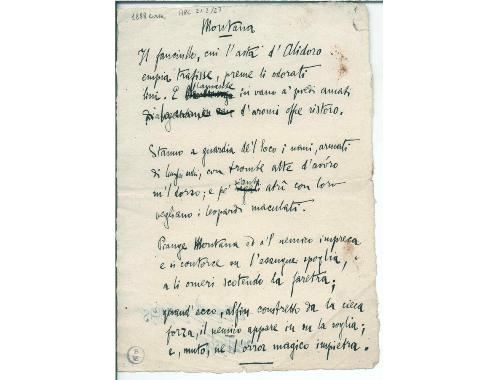 1888 circa
ARC 21.2/27
1
Montana
Il fanciullo, cui l'asta d'Alidoro
empia trafisse, preme li odorati
lini. E in vano a' piedi amati
d'aromi offre ristoro.
Stanno a guardia de'l loco i nani, armati
di con trombe alte d'avòro
ne'l dorso; e pe' atrii con loro
vegliano i leopardi maculati.
Piange Montana ed a'l nemico impreca
e si contorce su l'essangue spoglia,
a li omeri scotendo la faretra;
quand'ecco, alfin constretto da la cieca
forza, il nemico appare su la soglia;
e, muto, ne l'orror magico impietra.